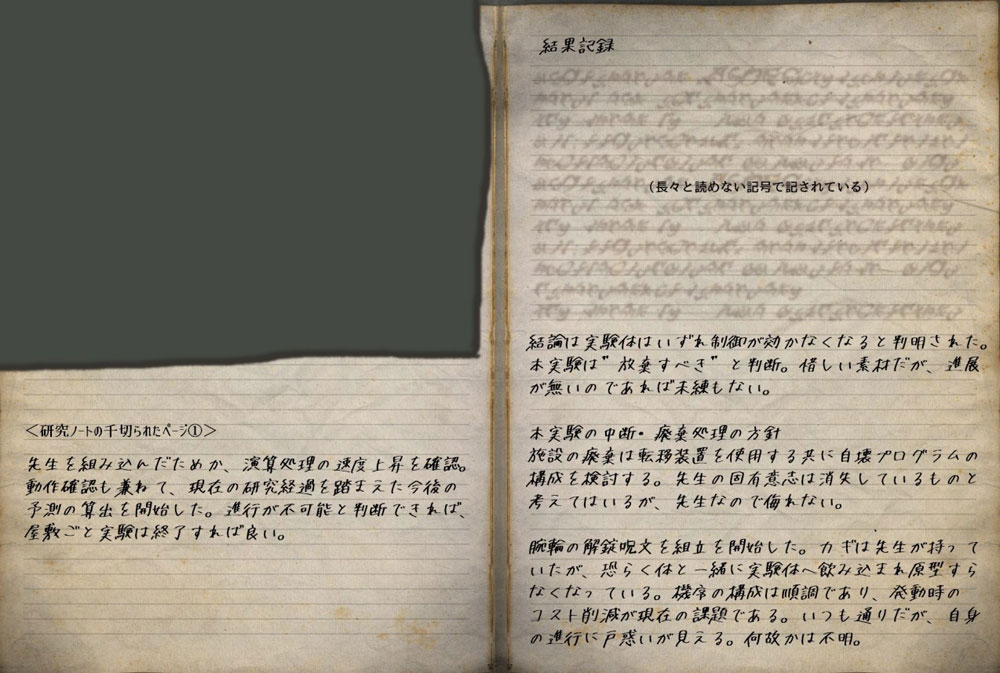 <研究ノートの千切られたページ①>
先生を組み込んだためか、演算処理の速度上昇を確認。
動作確認も兼ねて、現在の研究経過を踏まえた今後の
予測の算出を開始した。進行が不可能と判断できれば、
屋敷ごと実験は終了すれば良い。
結果記録
（長々と読めない記号で記されている）
結論は実験体はいずれ制御が効かなくなると判明された。
本実験は"放棄すべき"と判断。惜しい素材だが、進展
が無いのであれば未練もない。
本実験の中断・廃棄処理の方針
施設の廃棄は転移装置を使用する共に自壊プログラムの
構成を検討する。先生の固有意志は消失しているものと
考えてはいるが、先生なので侮れない。
腕輪の解錠呪文を組立を開始した。カギは先生が持って
いたが、恐らく体と一緒に実験体へ飲み込まれ原型すら
なくなっている。機序の構成は順調であり、発動時の
コスト削減が現在の課題である。いつも通りだが、自身
の進行に戸惑いが見える。何故かは不明。